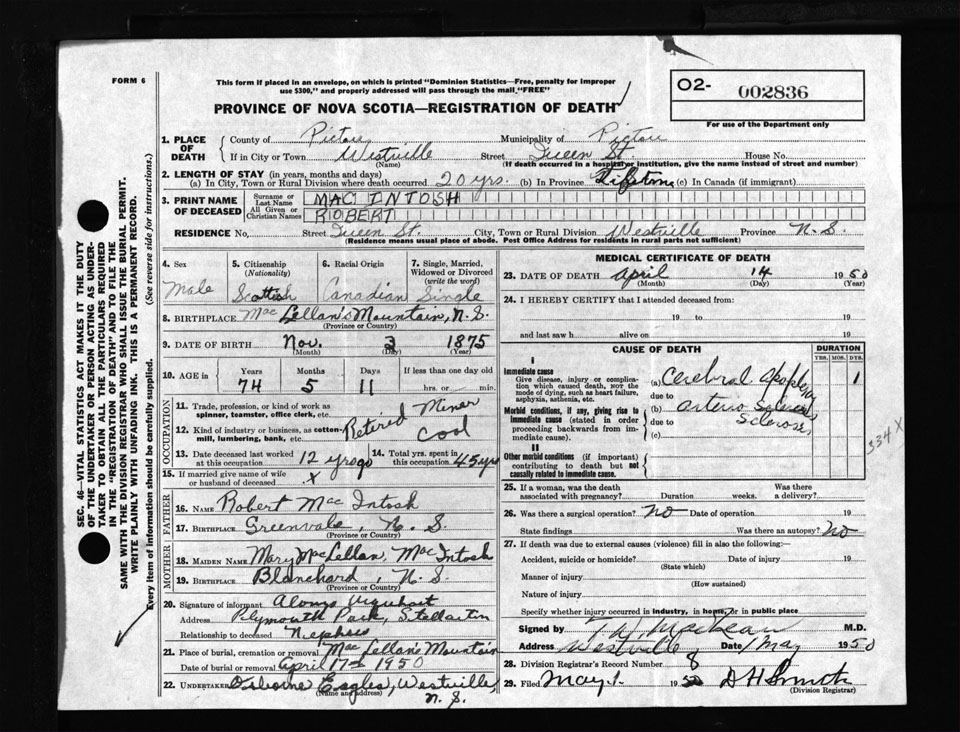 FORM 6
This form if placed in an envelope, on which is printed "Dominion Statistics—Free, penalty for improper
use $300," and properly addressed will pass through the mail "FREE"
PROVINCE OF NOVA SCOTIA—REGISTRATION OF DEATH
O2- 002836
For use of the Department only
SEC. 46—VITAL STATISTICS ACT MAKES IT THE DUTY
OF THE UNDERTAKER OR PERSON ACTING AS UNDER-
TAKER TO OBTAIN ALL THE PARTICULARS REQUIRED
IN THE "REGISTRATION OF DEATH" AND TO FILE THE
SAME WITH THE DIVISION REGISTRAR WHO SHALL ISSUE THE BURIAL PERMIT.
WRITE PLAINLY WITH UNFADING INK. THIS IS A PERMANENT RECORD.
Every item of information should be carefully supplied. (See reverse side for instructions.)
1. PLACE OF DEATH County of Pictou Municipality of Pictou
If in City or Town Westville Street Queen St. House No.
(Name) (If death occurred in a hospital or institution, give the name instead of street and number)
2. LENGTH OF STAY (in years, months and days)
(a) In City, Town or Rural Division where death occurred 20 yrs. (b) In Province Lifetime (c) In Canada (if immigrant)
3. PRINT NAME OF DECEASED Surname or Last Name MAC INTOSH
All Given or Christian Names ROBERT
RESIDENCE No. Street Queen St. City, Town or Rural Division Westville Province N.S.
(Residence means usual place of abode. Post Office Address for residents in rural parts not sufficient)
4. Sex 5. Citizenship (Nationality) 6. Racial Origin 7. Single, Married, Widowed or Divorced (write the word)
Male Scottish Canadian Single
8. BIRTHPLACE MacLellan's Mountain, N.S.
(Province or Country)
9. DATE OF BIRTH Nov. 3 1875
(Month) (Day) (Year)
10. AGE in Years Months Days If less than one day old
74 5 11 hrs. or min.
OCCUPATION
11. Trade, profession, or kind of work as spinner, teamster, office clerk, etc. Retired Miner
12. Kind of industry or business, as cotton-mill, lumbering, bank, etc. Coal
13. Date deceased last worked at this occupation 12 yrs ago 14. Total yrs. spent in this occupation 45 yrs
15. If married give name of wife or husband of deceased x
FATHER
16. NAME Robert MacIntosh
17. BIRTHPLACE Greenvale, N.S.
(Province or Country)
MOTHER
18. MAIDEN NAME Mary MacLellan, MacIntosh
19. BIRTHPLACE Blanchard, N.S.
(Province or Country)
20. Signature of informant Alonzo Urquhart
Address Plymouth Park, Stellarton
Relationship to deceased Niephew
21. Place of burial, cremation or removal MacLellan's Mountain
Date of burial or removal April 17th 1950
22. UNDERTAKER Osborne Eagles, Westville,
(Name and address) N.S.
MEDICAL CERTIFICATE OF DEATH
23. DATE OF DEATH April 14 1950
(Month) (Day) (Year)
24. I HEREBY CERTIFY that I attended deceased from:
19 to 19
and last saw h alive on 19
CAUSE OF DEATH DURATION
YRS. MOS. DYS.
I
Immediate cause
Give disease, injury or complication which caused death, NOT the mode of dying, such as heart failure, asphyxia, asthenia, etc.
(a) Cerebral Apoplexy 1
due to
Morbid conditions, if any, giving rise to immediate cause (stated in order proceeding backwards from immediate cause).
(b) Arterio
due to Sclerosis
(c)
334 X
II
Other morbid conditions (if important) contributing to death but not causally related to immediate cause.
25. If a woman, was the death associated with pregnancy? Duration weeks. Was there a delivery?
26. Was there a surgical operation? No Date of operation 19
State findings Was there an autopsy? No
27. If death was due to external causes (violence) fill in also the following:—
Accident, suicide or homicide? Date of injury 19
(State which)
Manner of injury
(How sustained)
Nature of injury
Specify whether injury occurred in industry, in home, or in public place
Signed by T.W. MacLean M.D.
Address Westville Date 1 May 1950
28. Division Registrar's Record Number 8
29. Filed May 1. 1950 D H Smith
(Division Registrar)